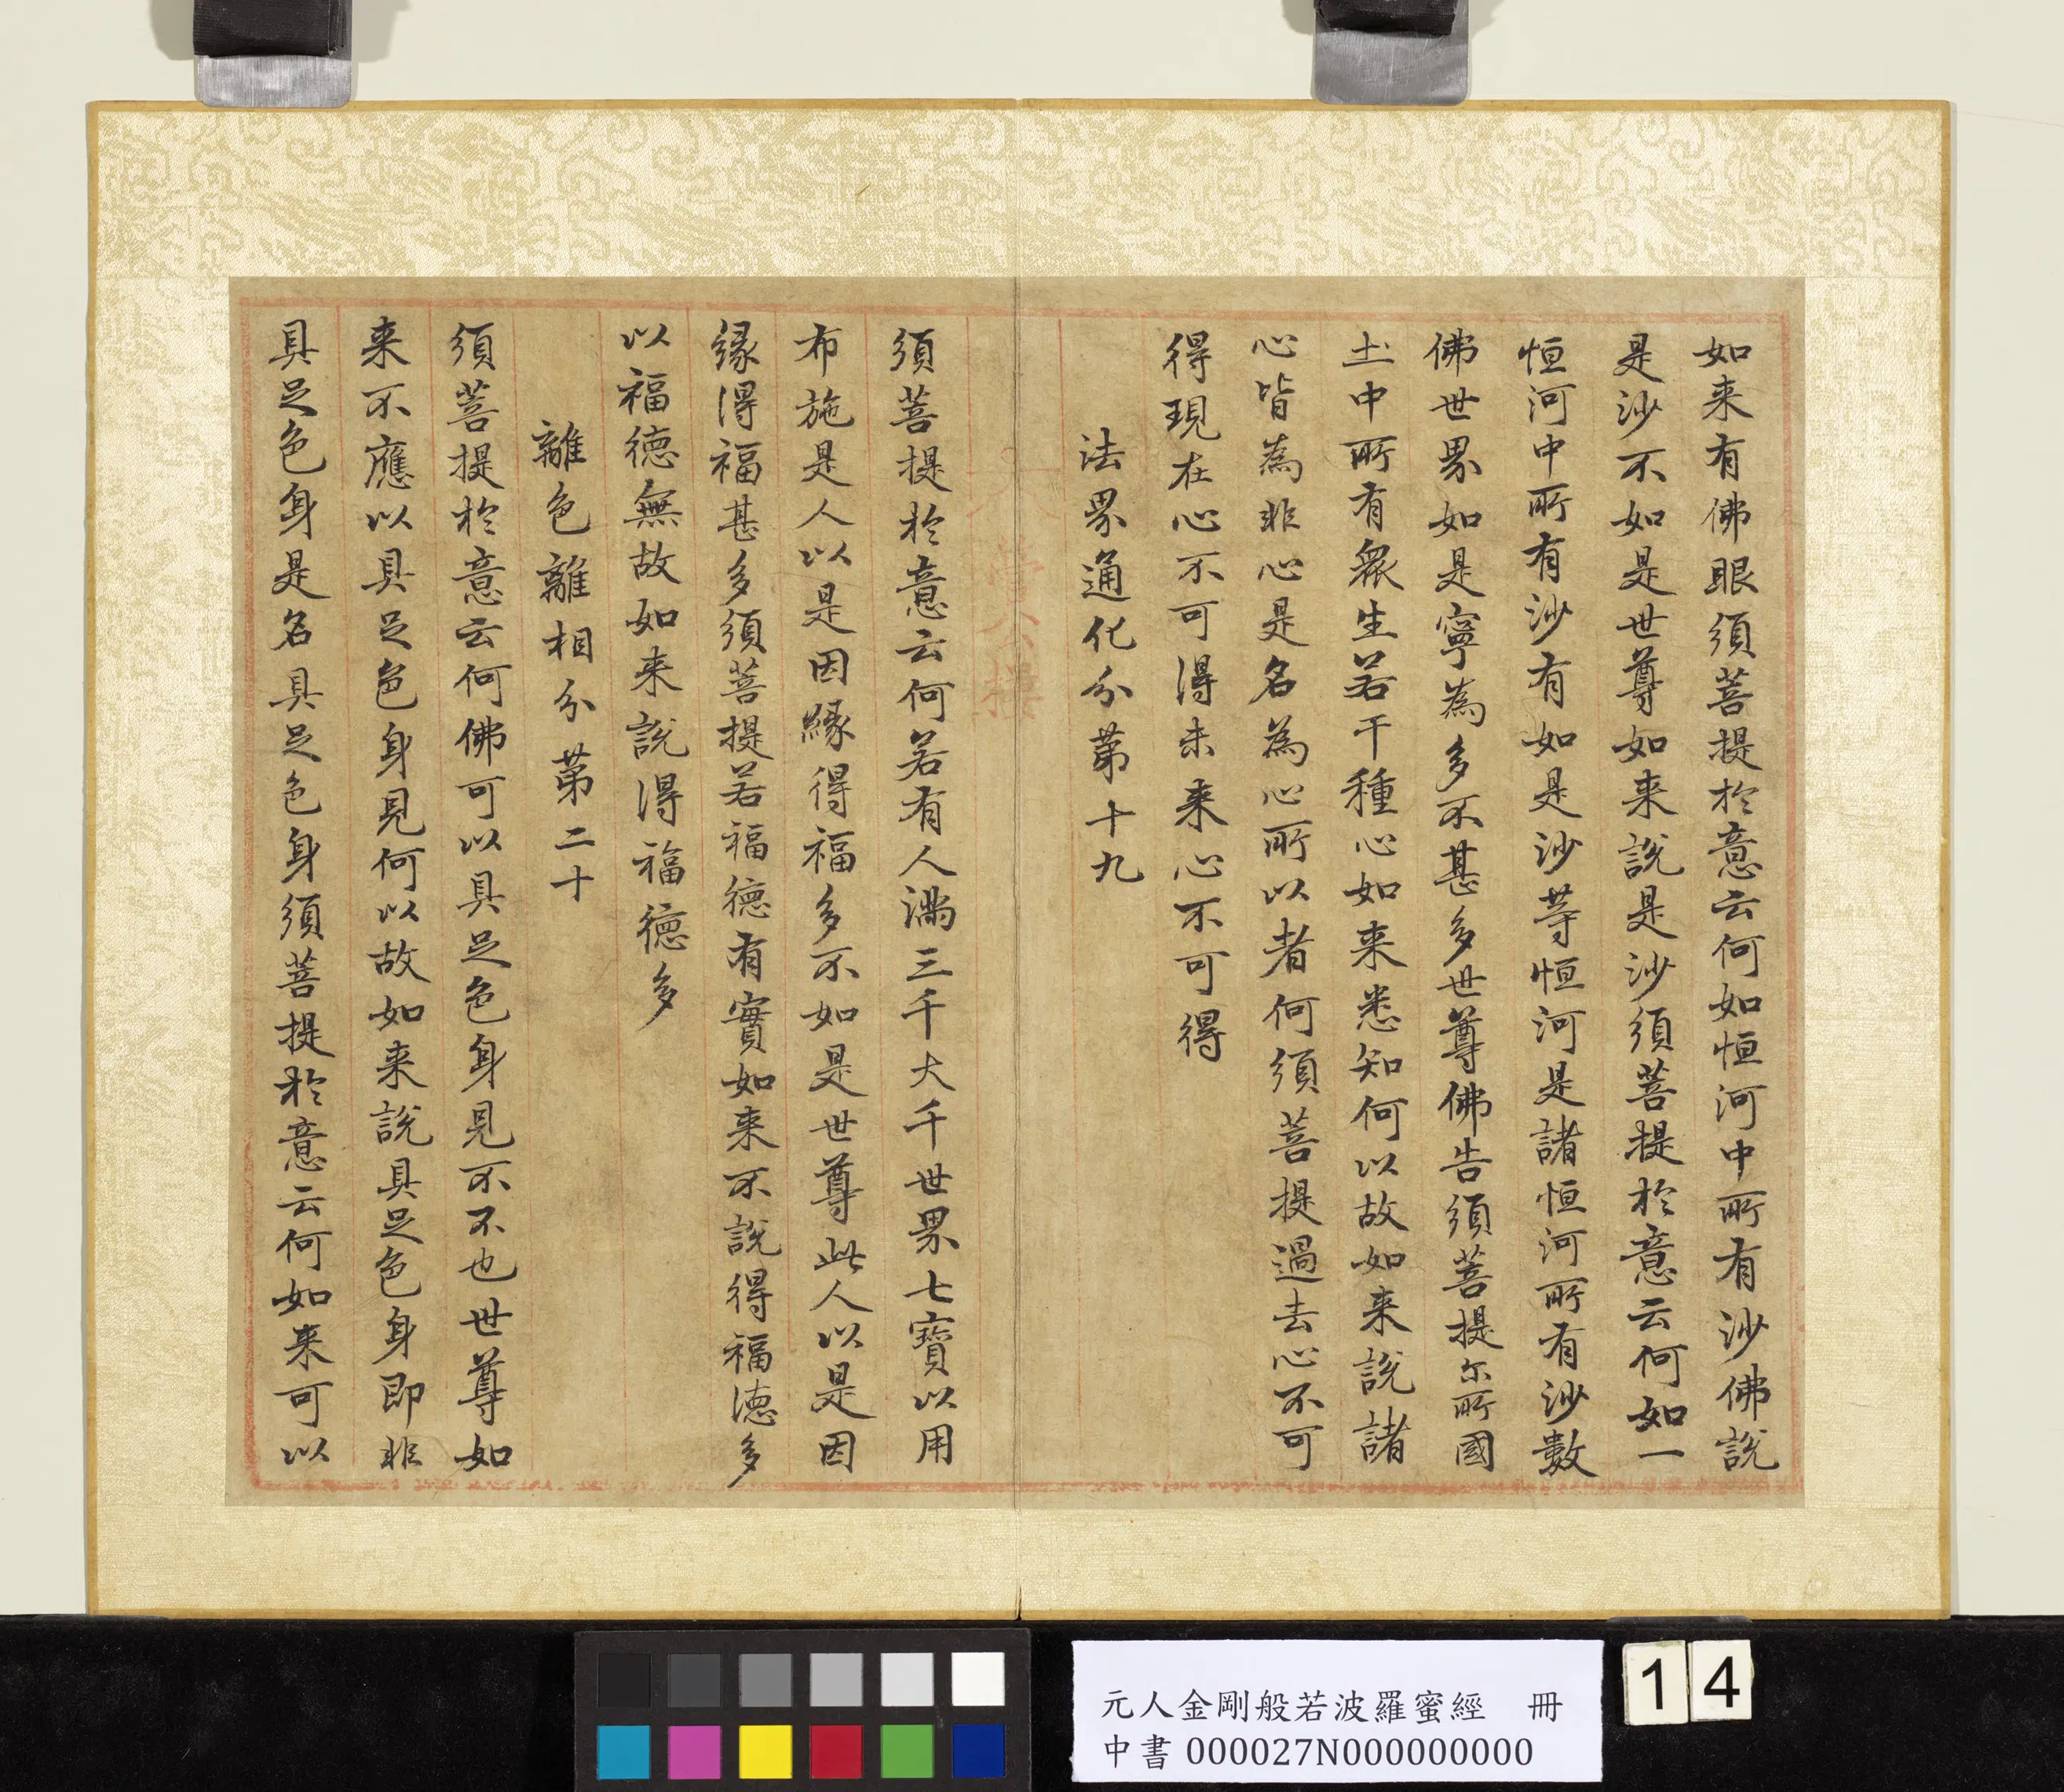 如来有佛眼須菩提於意云何如恒河中所有沙佛說
是沙不如是世尊如来說是沙須菩提於意云何如一
恒河中所有沙有如是沙等恒河是諸恒河所有沙數
佛世界如是寧為多不甚多世尊佛告須菩提尔所國
土中所有衆生若干種心如来悉知何以故如来說諸
心皆為非心是名為心所以者何須菩提過去心不可
得現在心不可得未来心不可得
法界通化分第十九
須菩提於意云何若有人滿三千大千世界七寶以用
布施是人以是因緣得福多不如是世尊此人以是因
緣得福甚多須菩提若福德有實如来不說得福德多
以福德無故如来說得福德多
離色離相分第二十
須菩提於意云何佛可以具足色身見不不也世尊如
来不應以具足色身見何以故如来說具足色身即非
具足色身是名具足色身須菩提於意云何如来可以
元人金剛般若波羅蜜經 冊
中書000027N000000000
14